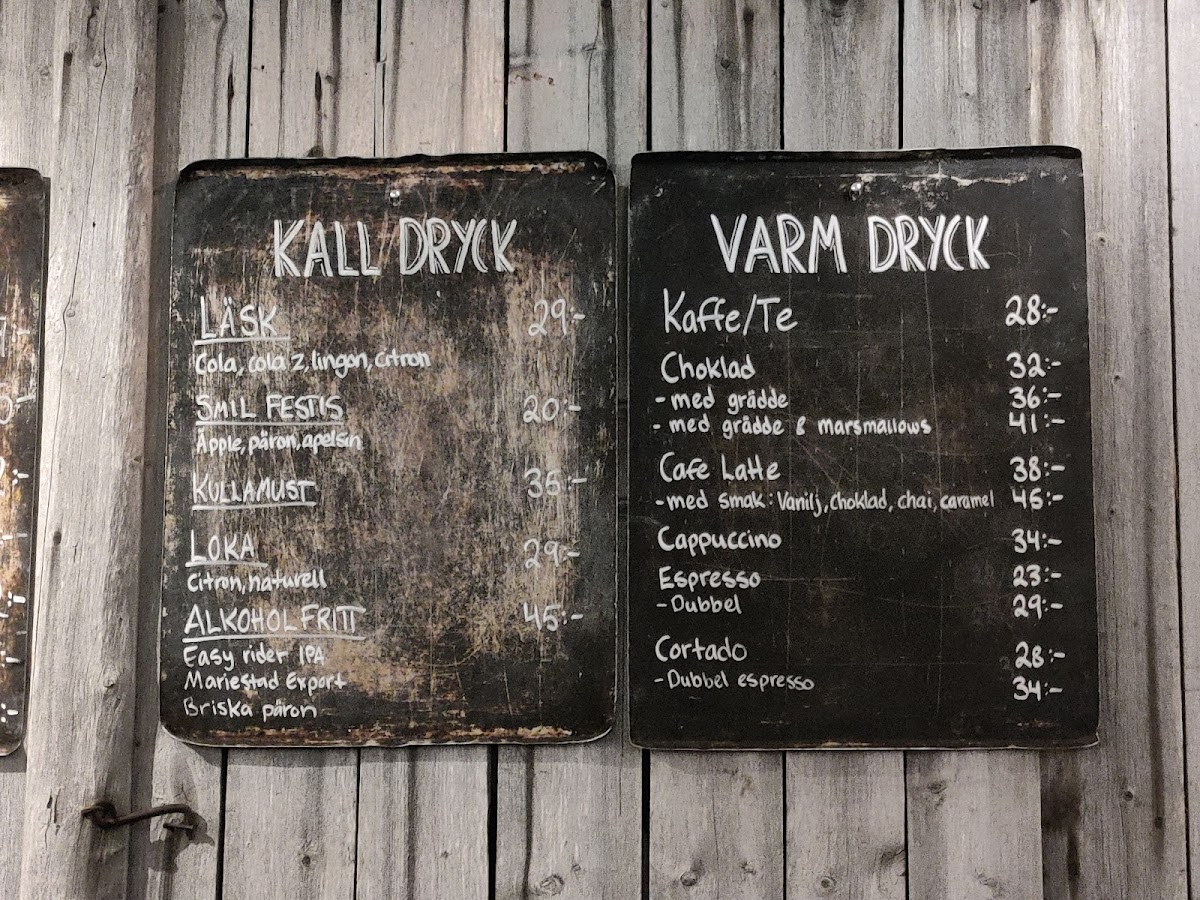 KALL DRYCK
LÄSK 29:-
Cola, cola z, lingon, citron
SMIL FESTIS 20:-
Äpple, päron, apelsin
KULLAMUST 35:-
LOKA 29:-
Citron, naturell
ALKOHOLFRITT 45:-
Easy rider IPA
Mariestad Export
Briska päron
VARM DRYCK
Kaffe/Te 28:-
Choklad 32:-
- med grädde 36:-
- med grädde & marsmallows 41:-
Cafe Latte 38:-
- med smak: Vanilj, choklad, chai, caramel 45:-
Cappuccino 34:-
Espresso 23:-
- Dubbel 29:-
Cortado 28:-
- Dubbel espresso 34:-